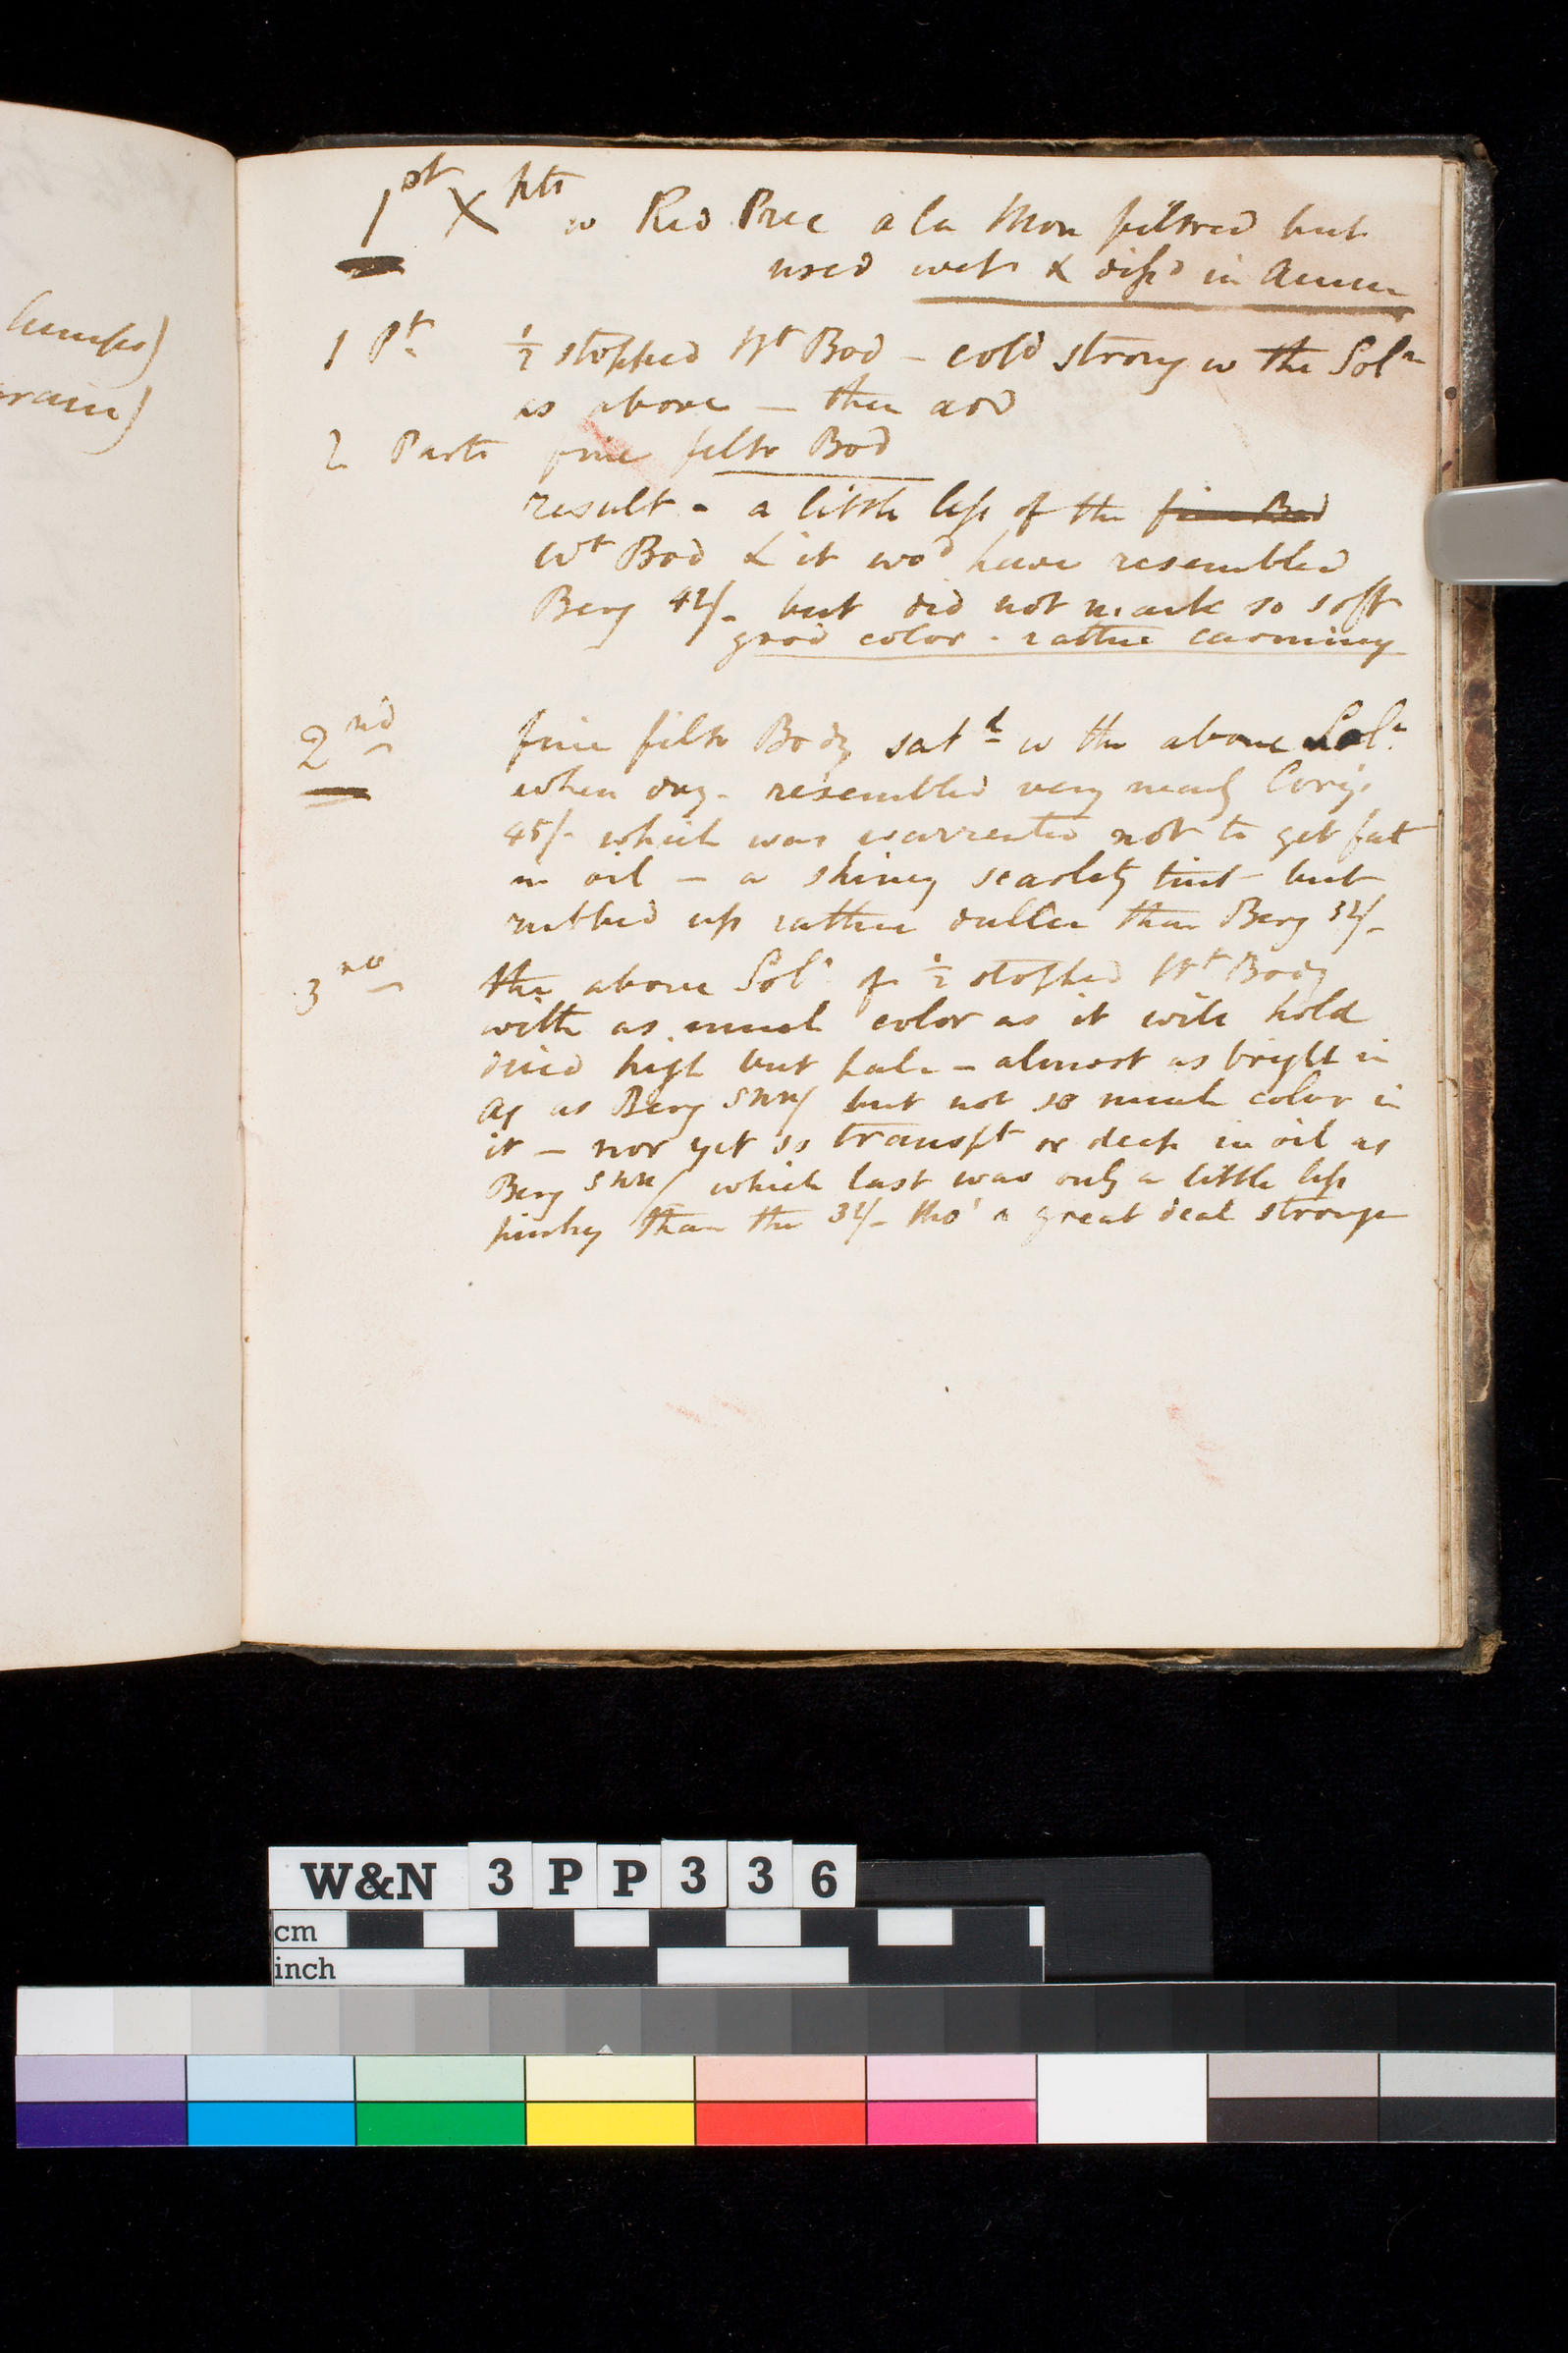 lumps)
1st Xpts w Red Prec a la Mon filtred but
used wet & dissd in Amm
1 Pt ½ stopped Wt Bod - cold strong w the Soln
as above - then add
2 Parts fine filtr Bod
result - a little less of the fine Bod
Wt Bod & it wod have resembled
Berg 42/- but did not mark so soft
good color - rather carminy
2nd fine filtr Body satd w the above Soln
when dry - resembled very nearly
45/- which was warrented not to get fat
in oil - a shiney scarlety tint but
rubbed up rather duller than Berg 32/-
3 the above Soln of ½ stopped Wt Body
with as much color as it will hold
dried high but pale - almost as bright in
aq as Berg but not so much color in
it - nor yet so transpt or deep in oil as
Berg which last was only a little less
pinky than the 32/- tho' a great deal stronger
W&N 3PP336
cm
inch